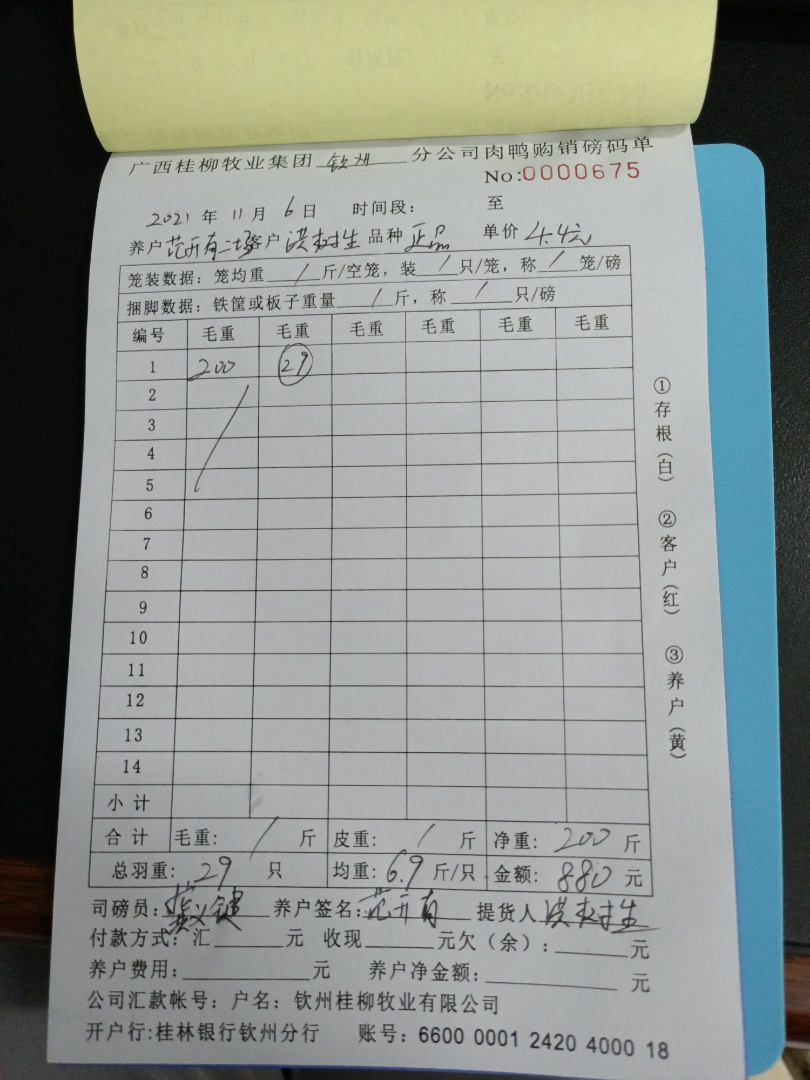 广西桂柳牧业集团 钦州 分公司肉鸭购销磅码单
No:0000675
2021 年 11 月 6 日 时间段: 至
养户 范开有二场 客户 洪树生 品种 正品 单价 4.4元
笼装数据: 笼均重 / 斤/空笼, 装 / 只/笼, 称 / 笼/磅
捆脚数据: 铁筐或板子重量 / 斤, 称 / 只/磅
编号 毛重 毛重 毛重 毛重 毛重 毛重
1 200 29
2
3
4
5
6
7
8
9
10
11
12
13
14
小计
合计 毛重: / 斤 皮重: / 斤 净重: 200 斤
总羽重: 29 只 均重: 6.9 斤/只 金额: 880 元
司磅员: 养户签名: 范开有 提货人 洪树生
付款方式: 汇 元 收现 元欠(余): 元
养户费用: 元 养户净金额: 元
公司汇款帐号: 户名: 钦州桂柳牧业有限公司
开户行:桂林银行钦州分行 账号: 6600 0001 2420 4000 18
①存根(白) ②客户(红) ③养户(黄)